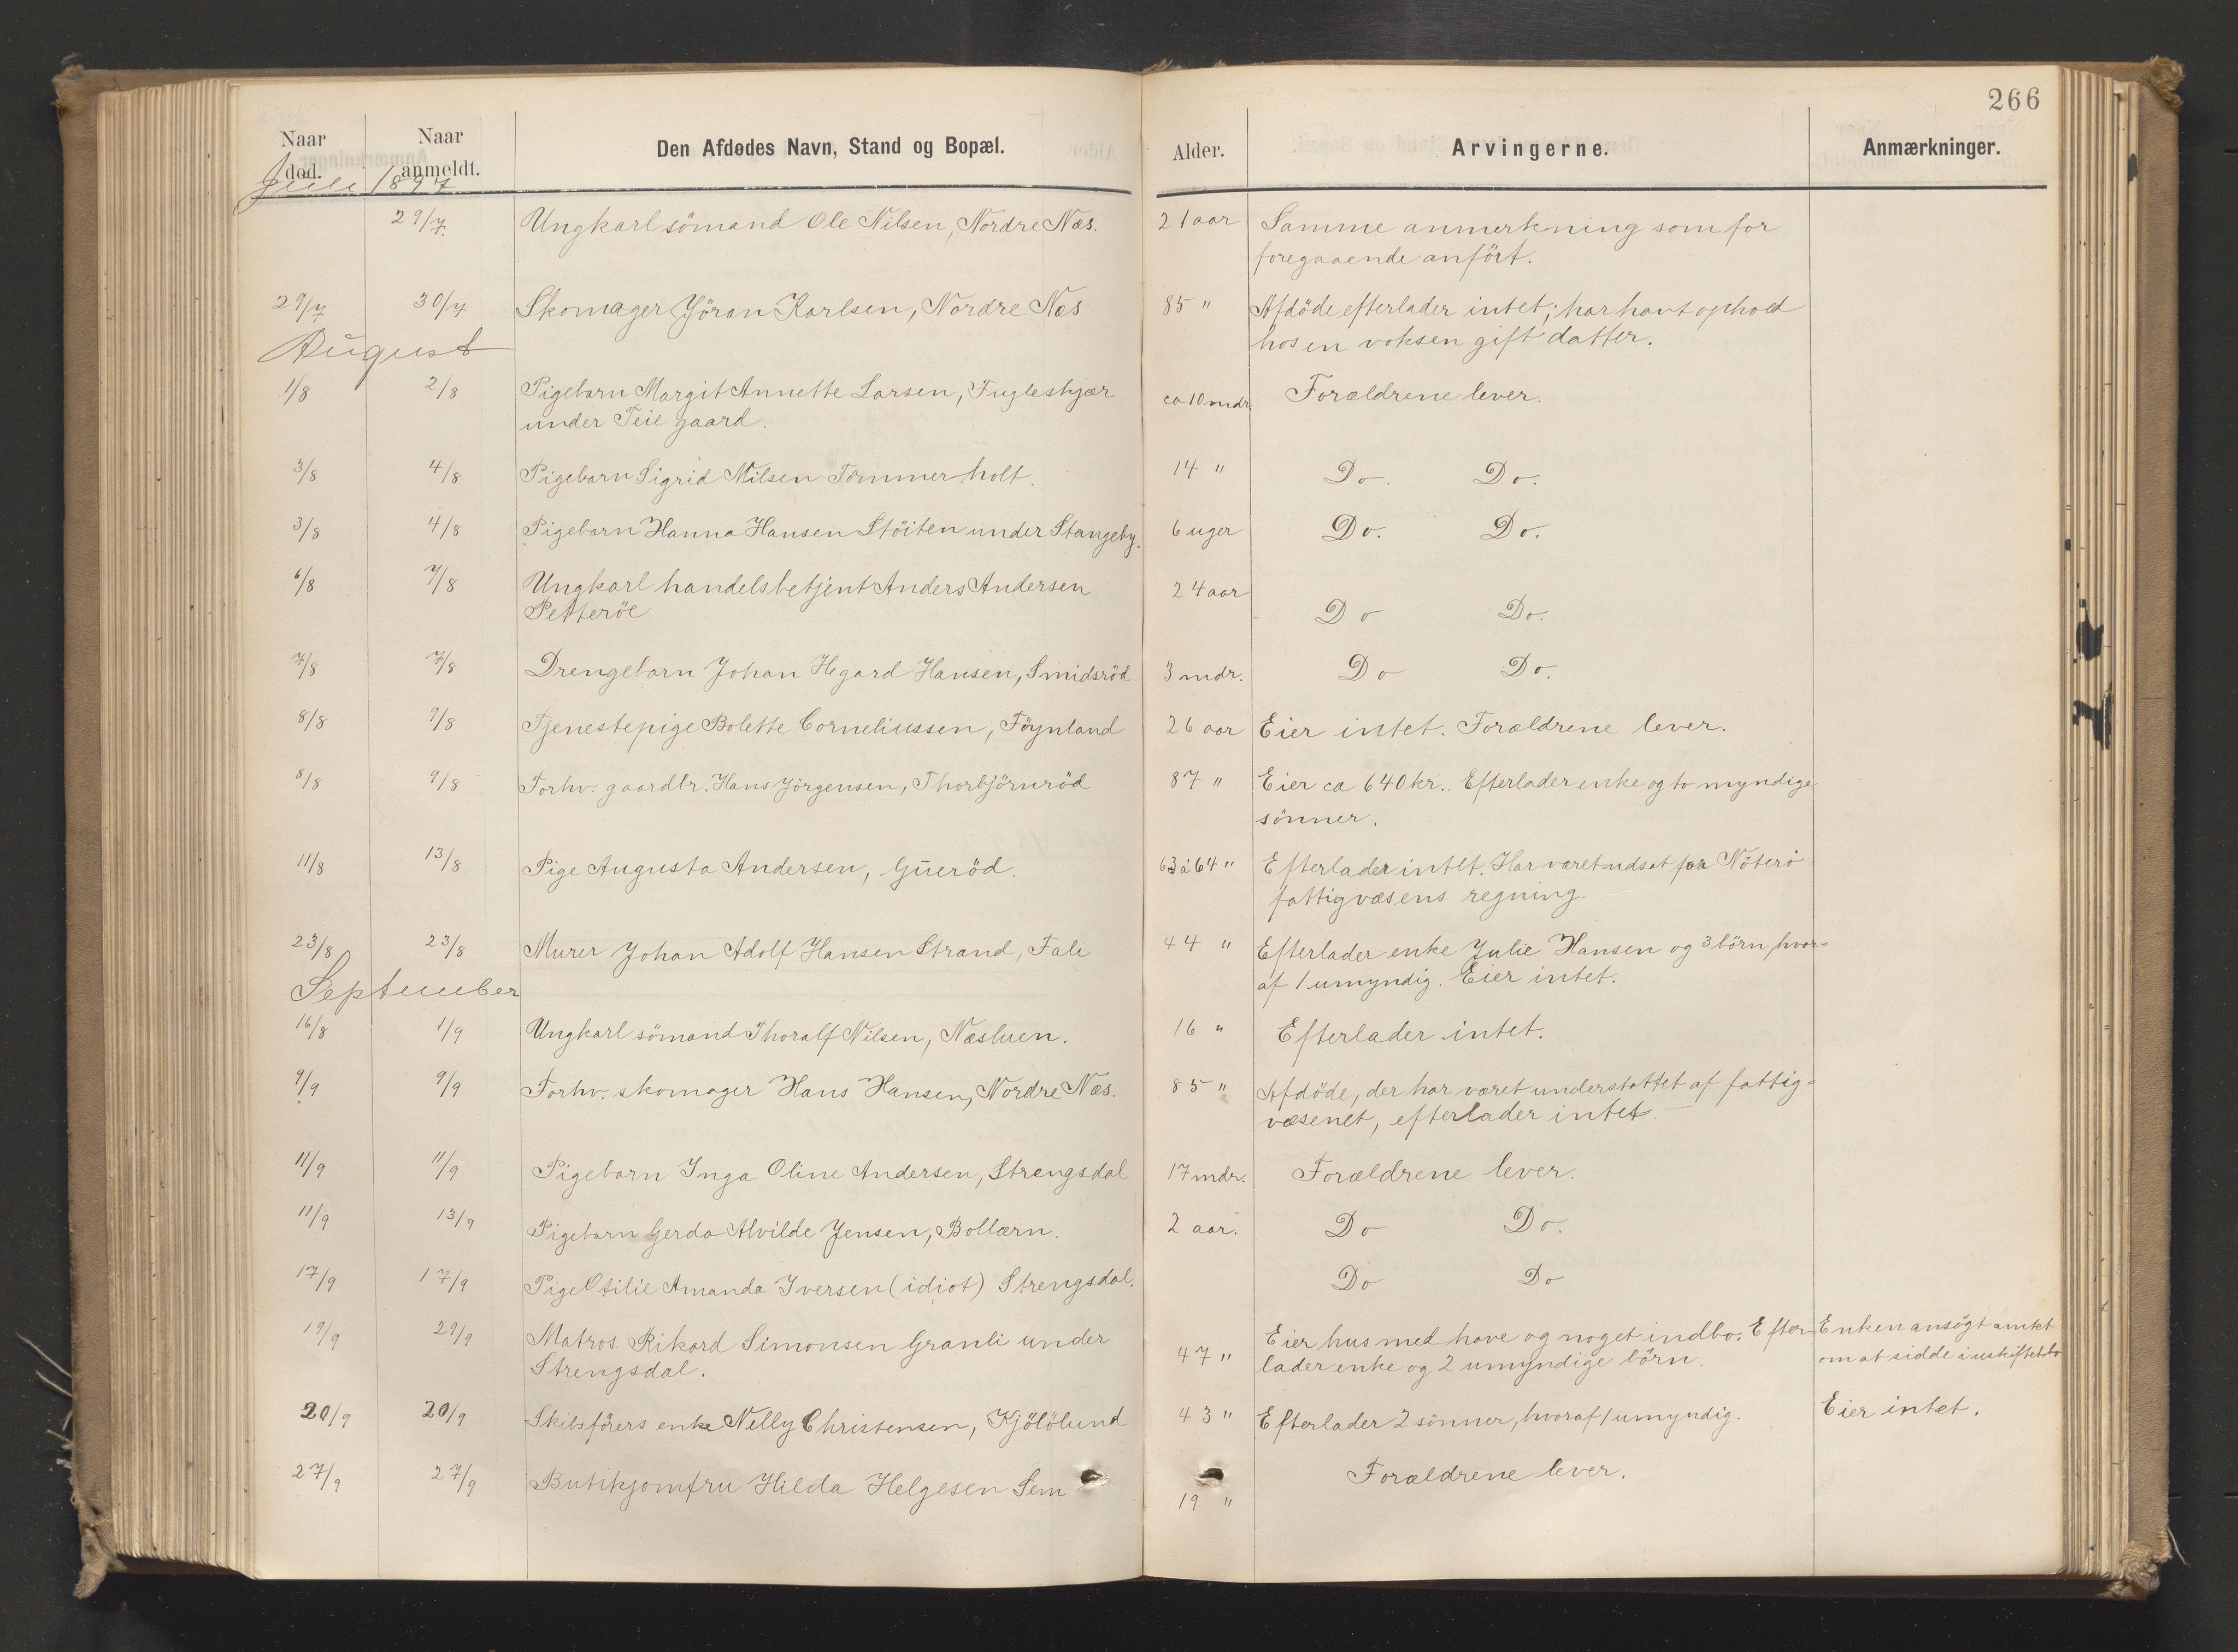 266
Naar død. Naar anmeldt. Den Afdødes Navn, Stand og Bopæl. Alder. Arvingerne. Anmærkninger.
Juli 1897
29/7. Ungkarl sömand Ole Nilsen, Nordre Næs. 21 aar Samme anmerkning som for
foregaaende anfört.
29/7 30/7 Skomager Jöran Karlsen, Nordre Næs 85 " Afdöde efterlader intet; har havt ophold
hos en voksen gift datter.
August
1/8 2/8 Pigebarn Margit Annette Larsen, Fugleskjær ca 10 mdr. Forældrene lever.
under Teie gaard.
3/8 4/8 Pigebarn Sigrid Nilsen Tömmerholt. 14 " Do. Do.
3/8 4/8 Pigebarn Hanna Hansen Stöiten under Stangeby. 6 uger Do. Do.
6/8 7/8 Ungkarl handelsbetjent Anders Andersen 24 aar
Petteröe Do Do.
7/8 7/8 Drengebarn Johan Hegard Hansen, Smidsröd 3 mdr. Do Do.
8/8 9/8 Tjenestepige Bolette Corneliussen, Föynland 26 aar Eier intet. Forældrene lever.
8/8 9/8 Forhv. gaardbr. Hans Jörgensen, Thorbjörnröd 87 " Eier ca 640 kr. Efterlader enke og to myndige
sönner.
11/8 13/8 Pige Augusta Andersen, Gueröd. 63 à 64 " Efterlader intet. Har været udsat paa Nöterö
fattigvæsens regning.
23/8 23/8 Murer Johan Adolf Hansen Strand, Fale 44 " Efterlader enke Julie Hansen og 3 börn, hvor=
af 1 umyndig. Eier intet.
September
16/8 1/9 Ungkarl sömand Thoralf Nilsen, Næsluen. 16 " Efterlader intet.
9/9 9/9 Forhv. skomager Hans Hansen, Nordre Næs. 85 " Afdöde, der har været understöttet af fattig=
væsenet, efterlader intet
11/9 11/9 Pigebarn Inga Oline Andersen, Strengsdal 17 mdr. Forældrene lever.
11/9 13/9 Pigebarn Gerda Alvilde Jensen, Bollærn. 2 aar. Do Do.
17/9 17/9 Pige Otilie Amanda Iversen (idiot) Strengsdal. Do Do
19/9 29/9 Matros Rikard Simonsen Granli under 47 " Eier hus med have og noget indbo. Efter- Enken ansögt amtet
Strengsdal. lader enke og 2 umyndige börn. om at sidde i uskiftet bo
20/9 20/9 Skibsförers enke Nelly Christensen, Kjölölund 43 " Efterlader 2 sönner, hvoraf 1 umyndig. Eier intet.
27/9 27/9 Butikjomfru Hilda Helgesen Sem 19 " Forældrene lever.